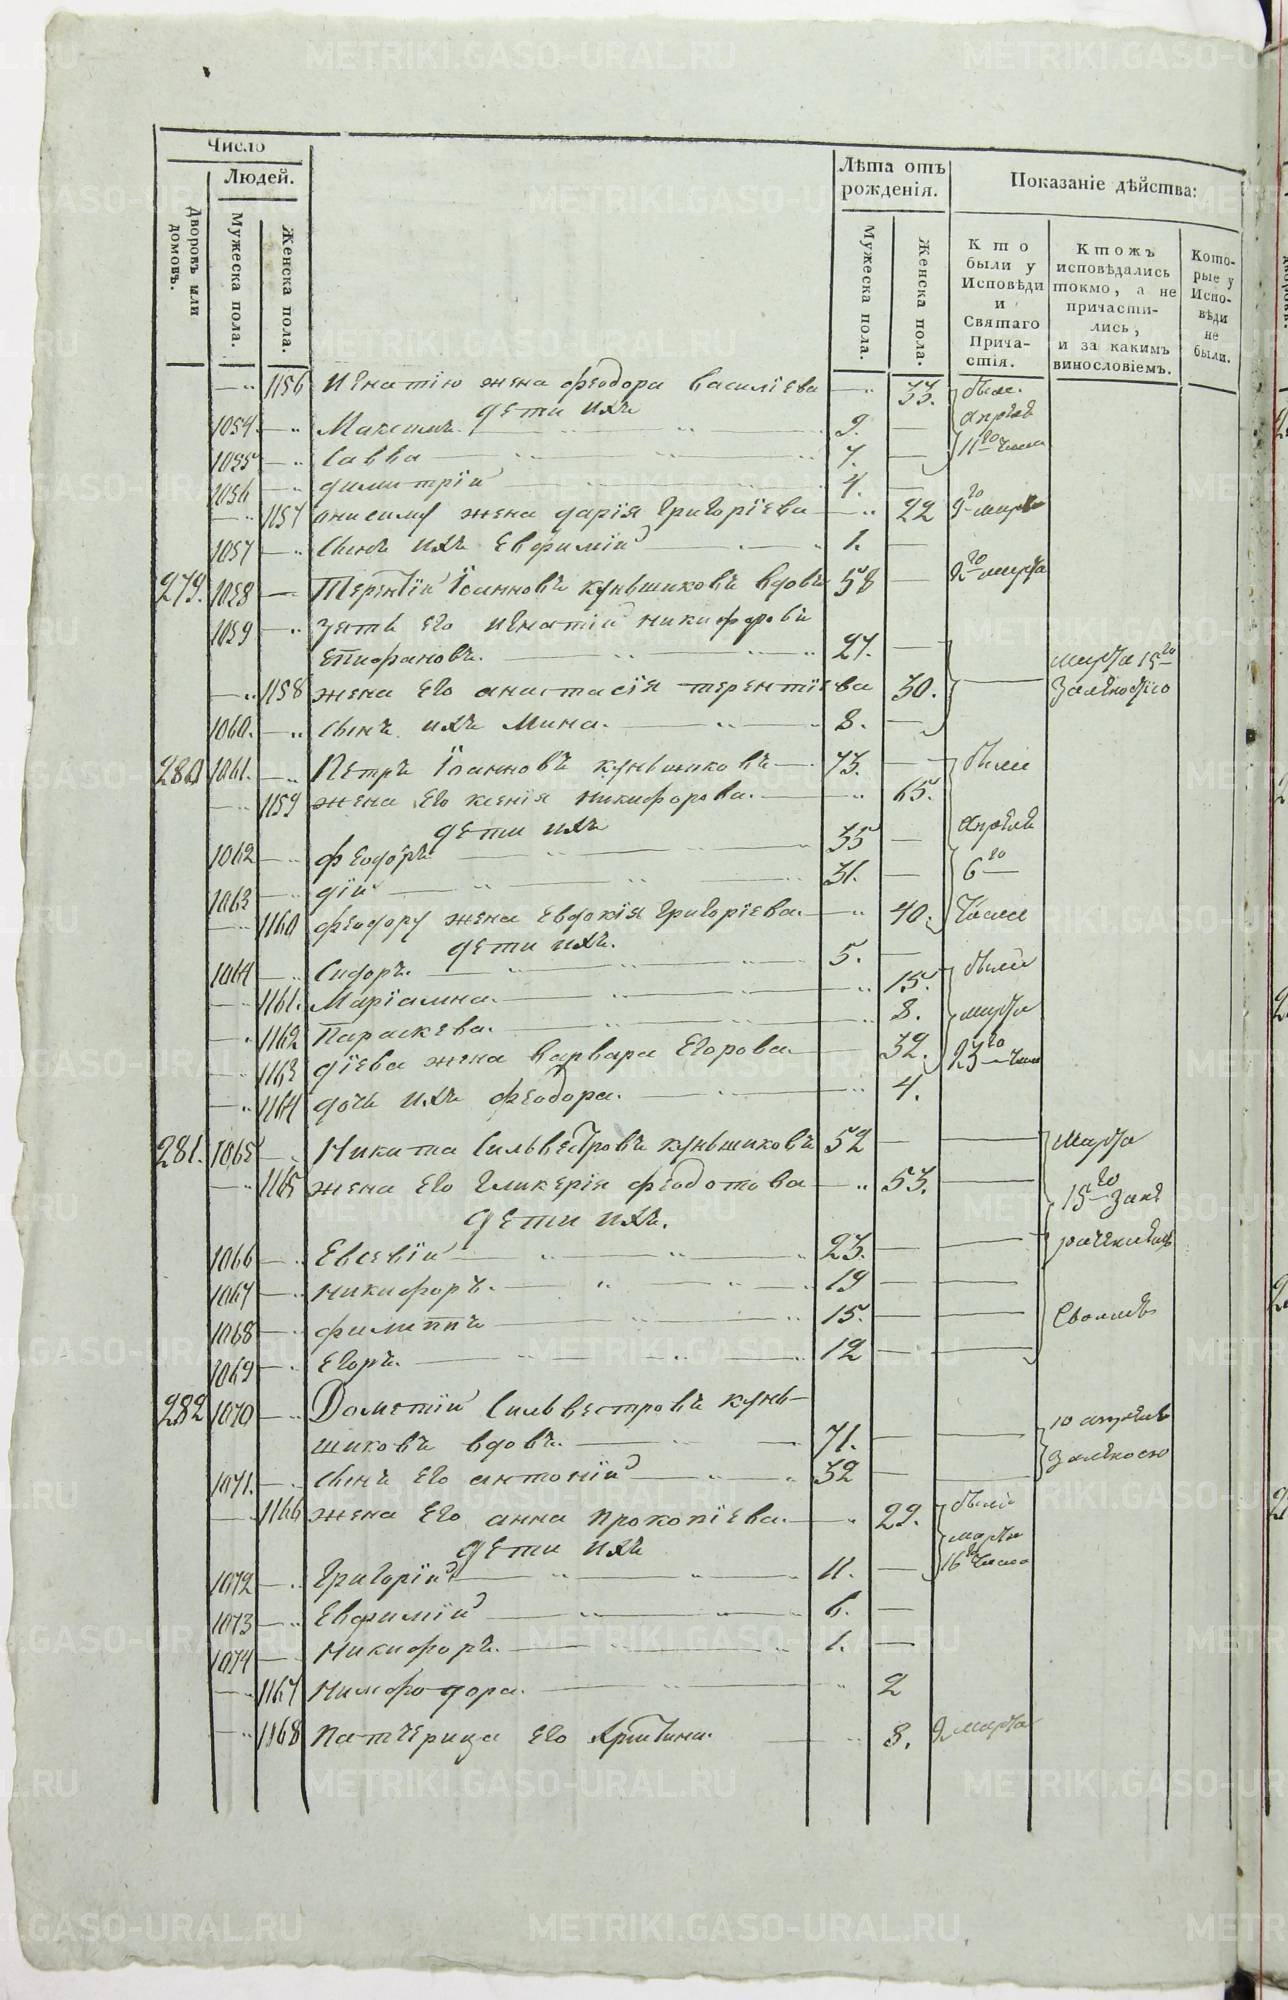 Число
Людей.
Дворовъ или домовъ.
Мужеска пола.
Женска пола.
Лѣта отъ рожденія.
Мужеска пола.
Женска пола.
Показаніе дѣйства:
Кто были у Исповѣди и Святаго Причастія.
Ктожъ исповѣдались токмо, а не причастились, и за какимъ винословіемъ.
Которые у Исповѣди не были.
1156 Игнатію жена Феодора Василіева 33. были
дети ихъ апрѣля
1054 Максимъ 9. 11го числа
1055 Савва 7.
1056 Димитрій 4.
1157 Онисиму жена Дарія Григоріева 22 9го марта
1057 Сынъ ихъ Евфимій 1.
279. 1058 Терентій Іоанновъ Куньшиковъ вдовъ 58 9го марта
1059 Зять его Игнатій Никифоровъ
Епифановъ. 27. марта 15го
1158 жена его Анастасія Терентіева 30.
1060. Сынъ ихъ Мина. 8.
280 1061. Петръ Іоанновъ Куньшиковъ 73. были
1159 жена его Ксенія Никифорова. 65.
дети ихъ апрѣля
1062 Феодоръ 35
1063 Дій 31. 6го
1160 Феодору жена Евдокія Григоріева. 40. числа
дети ихъ.
1064 Сидоръ. 5. были
1161. Маріамна. 15.
1162 Параскева. 8. марта
1163 Діева жена Варвара Егорова. 32. 23го числа
1164 дочь ихъ Феодора. 4.
281. 1065 Никита Сильвестровъ Куньшиковъ 52 марта
1165 жена его Гликерія Феодотова 53. 15го
дети ихъ.
1066 Евсевій 23.
1067 Никифоръ. 19
1068 Филиппъ 15.
1069 Егоръ. 12
282 1070 Дометій Сильвестровъ Кунь-
шиковъ вдовъ. 71. 10 апрѣля
1071. Сынъ его Антоній 32
1166 жена его Анна Прокопіева. 29. были
дети ихъ марта
1072 Григорій 11. 16го числа
1073 Евфимій 6.
1074 Никифоръ. 1.
1167 Нимфодора. 2
1168 Патчерица его Христина. 8. 9 марта
METRIKI.GASO-URAL.RU